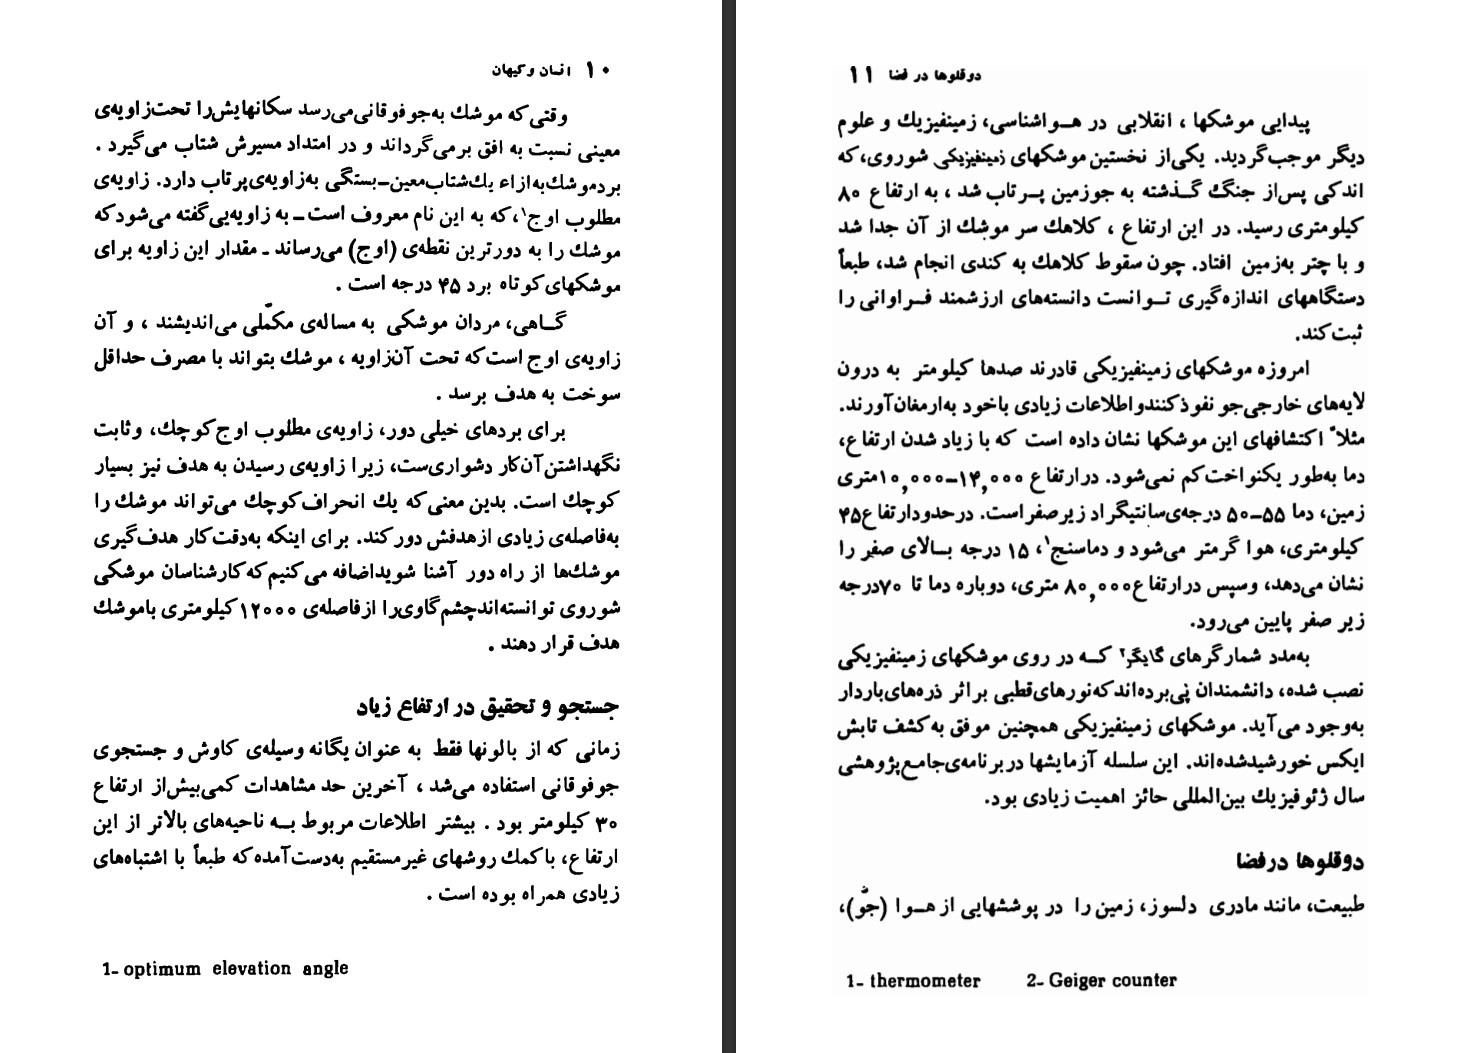 ۱۰ انسان و کیهان
وقتی که موشك به‌جو فوقانی می‌رسد سکانهایش‌را تحت‌زاویه‌ی
معینی نسبت به افق برمی‌گرداند و در امتداد مسیرش شتاب می‌گیرد .
بردموشك‌به‌ازاء یك‌شتاب‌معین-بستگی به‌زاویه‌ی‌پرتاب دارد. زاویه‌ی
مطلوب اوج۱،که به این نام معروف است ـ به زاویه‌یی‌گفته می‌شودکه
موشك را به دورترین نقطه‌ی (اوج) می‌رساند ـ مقدار این زاویه برای
موشکهای‌کوتاه برد ۴۵ درجه است .
گــاهی، مردان موشکی به مساله‌ی مکمّلی می‌اندیشند ، و آن
زاویه‌ی اوج است‌که تحت آن‌زاویه ، موشك بتواند با مصرف حداقل
سوخت به هدف برسد .
برای بردهای خیلی دور، زاویه‌ی مطلوب اوج‌کوچك، وثابت
نگهداشتن‌آن‌کار دشواری‌ست، زیرا زاویه‌ی رسیدن به هدف نیز بسیار
کوچك است. بدین معنی‌که یك انحراف‌کوچك می‌تواند موشك را
به‌فاصله‌ی زیادی ازهدفش دورکند. برای اینکه به‌دقت‌کار هدف‌گیری
موشك‌ها از راه دور آشنا شویداضافه می‌کنیم‌که‌کارشناسان موشکی
شوروی توانسته‌اندچشم‌گاوی‌را ازفاصله‌ی ۱۲۰۰۰کیلومتری باموشك
هدف قرار دهند .
جستجو و تحقیق در ارتفاع زیاد
زمانی که از بالونها فقط به عنوان یگانه وسیله‌ی کاوش و جستجوی
جوفوقانی استفاده می‌شد ، آخرین حد مشاهدات کمی‌بیش‌از ارتفاع
۳۰ کیلومتر بود . بیشتر اطلاعات مربوط بــه ناحیه‌های بالاتر از این
ارتفاع، باکمك روشهای غیرمستقیم به‌دست‌آمده‌که طبعاً با اشتباه‌های
زیادی همراه بوده است .
1- optimum elevation angle
دوقلوها در فضا ۱۱
پیدایی موشکها ، انقلابی در هــواشناسی، زمینفیزیك و علوم
دیگر موجب‌گردید. یکی‌از نخستین موشکهای زمینفیزیکی شوروی،که
اندکی پس‌از جنگ گــذشته به جوزمین پــرتاب شد ، به ارتفاع ۸۰
کیلومتری رسید. در این ارتفاع ، کلاهك سر موشك از آن جدا شد
و با چتر به‌زمین افتاد. چون سقوط کلاهك به کندی انجام شد، طبعاً
دستگاههای اندازه‌گیری تــوانست دانسته‌های ارزشمند فــراوانی را
ثبت‌کند.
امروزه موشکهای زمینفیزیکی قادرند صدها کیلومتر به درون
لایه‌های خارجی‌جو نفوذکنندواطلاعات زیادی باخود به‌ارمغان‌آورند.
مثلاً اکتشافهای این موشکها نشان داده است که با زیاد شدن ارتفاع،
دما به‌طور یکنواخت‌کم نمی‌شود. درارتفاع ۱۴,۰۰۰-۱۰,۰۰۰متری
زمین، دما ۵۵-۵۰ درجه‌ی‌سانتیگراد زیرصفراست. درحدودارتفاع۴۵
کیلومتری، هوا گرمتر می‌شود و دماسنج۱، ۱۵ درجه بــالای صفر را
نشان می‌دهد، وسپس درارتفاع۸۰,۰۰۰ متری، دوباره دما تا ۷۰درجه
زیر صفر پایین می‌رود.
به‌مدد شمارگرهای گایگر۲ کــه در روی موشکهای زمینفیزیکی
نصب شده، دانشمندان پی‌برده‌اندکه‌نورهای‌قطبی براثر ذره‌های‌باردار
به‌وجود می‌آید. موشکهای زمینفیزیکی همچنین موفق به‌کشف تابش
ایکس خورشیدشده‌اند. این سلسله آزمایشها دربرنامه‌ی‌جامع‌پژوهشی
سال ژئوفیزیك بین‌المللی حائز اهمیت زیادی بود.
دوقلوها درفضا
طبیعت، مانند مادری دلسوز، زمین را در پوششهایی از هــوا (جوّ)،
1- thermometer 2- Geiger counter